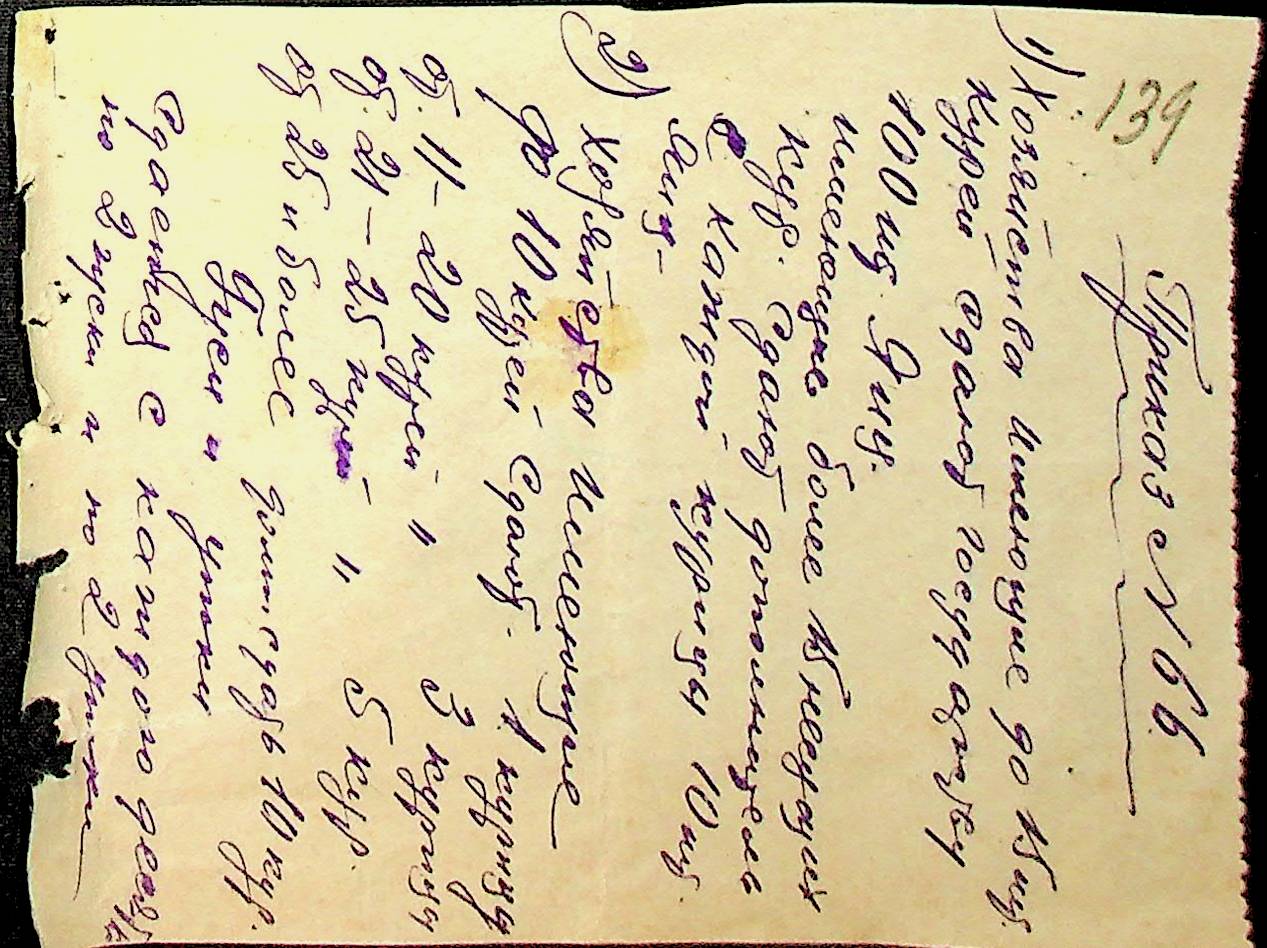 139
Приказ № 66.
1) Хозяйства имеющие до 15 шт.
курей сдают государству
100 шт. Яиц.
имеющие более 15 несущих
кур. сдают дополнительно
с каждой курицы 10 шт.
Яиц.
2) Хозяйства имеющие
до 10 курей сдают. 1 курицу
от. 11 – 20 курей " 3 курицы
от. 21 – 25 курей – " 5 кур.
от 25 и более должны сдать 10 кур.
Гуси и утки
сдается с каждого
по 2 гуски и по 2 утки